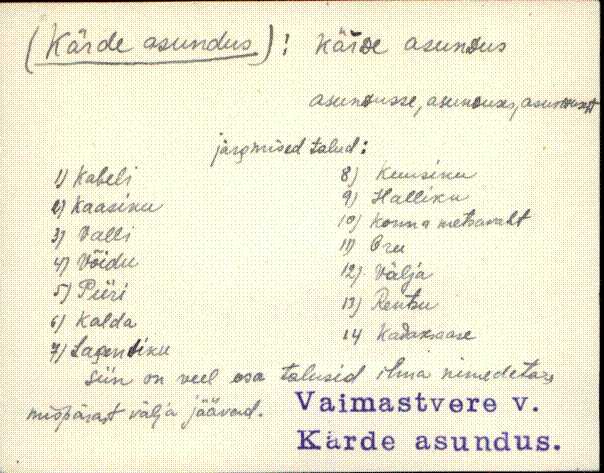 (Kärde asundus): Kärde asundus
asundusse, asunduses, asundusest
järgmised talud:
1) Kabeli
2) Kaasiku
3) Valli
4) Võidu
5) Piiri
6) Kalda
7) Lagendiku
8) Kuusiku
9) Halliku
10) Konna metsavaht
11) Oru
12) Välja
13) Rentsu
14 Kadaksaare
Siin on veel osa talusid ilma nimedeta,
mispärast välja jäävad.
Vaimastvere v.
Kärde asundus.